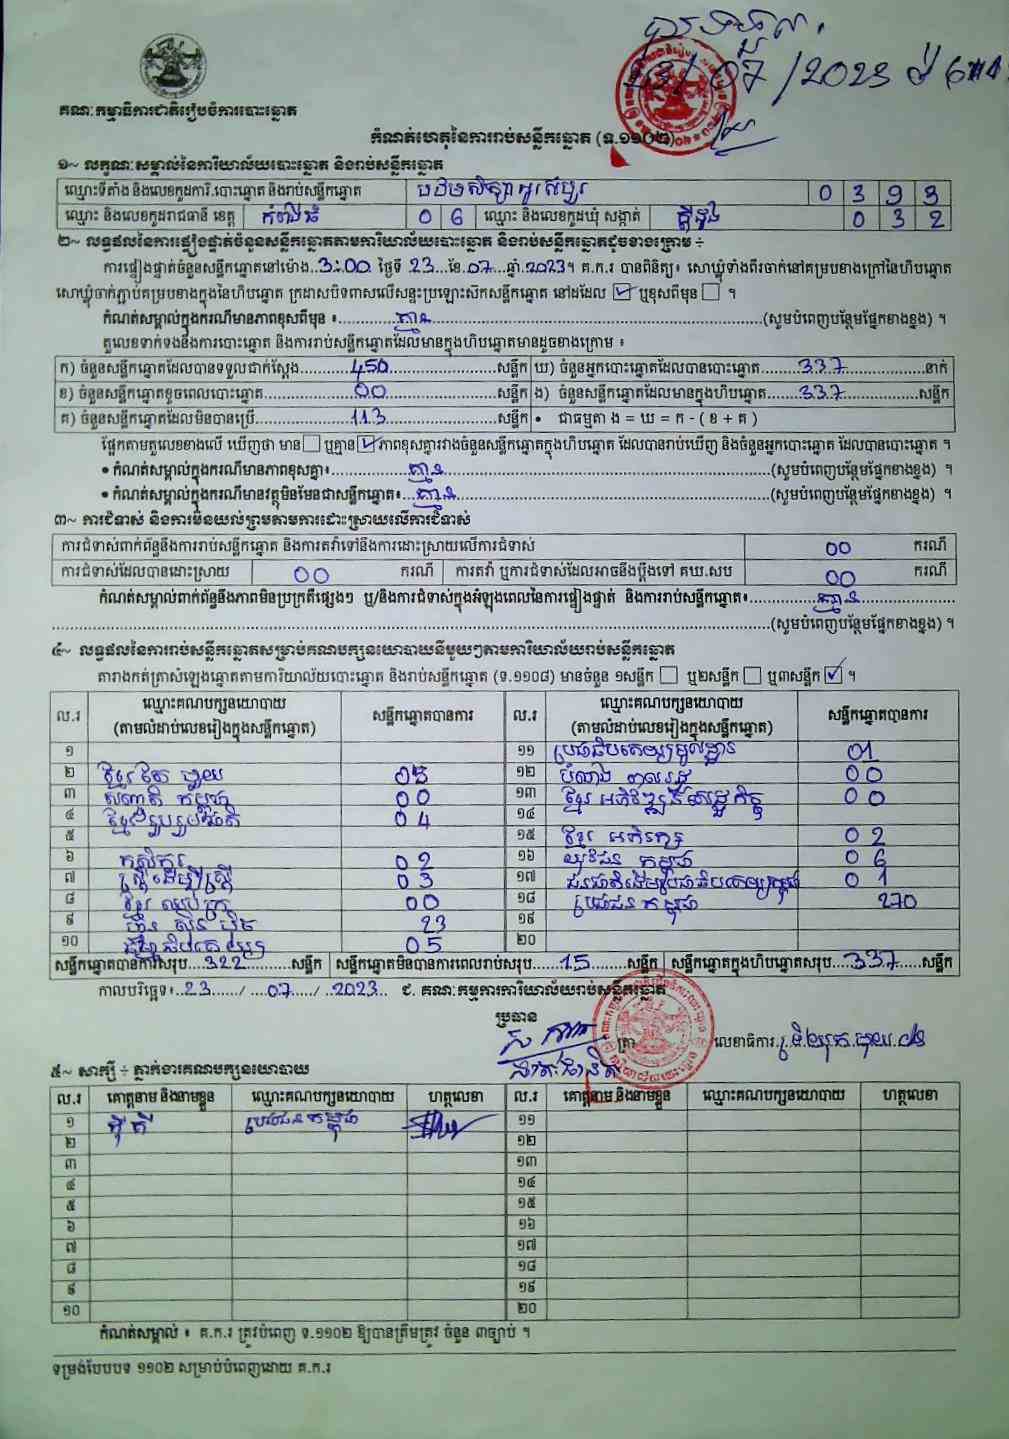 គណៈកម្មាធិការជាតិរៀបចំការបោះឆ្នោត
23/07/2023
កំណត់ហេតុនៃការរាប់សន្លឹកឆ្នោត (ទ.១១០២)
១~ លក្ខណៈសម្គាល់នៃការិយាល័យបោះឆ្នោត និងរាប់សន្លឹកឆ្នោត
ឈ្មោះទីតាំង និងលេខកូដការិ.បោះឆ្នោត និងរាប់សន្លឹកឆ្នោត 0393
ឈ្មោះ និងលេខកូដរាជធានី ខេត្ត កំពង់ធំ 06 ឈ្មោះ និងលេខកូដឃុំ សង្កាត់ 032
២~ លទ្ធផលនៃការផ្ទៀងផ្ទាត់ចំនួនសន្លឹកឆ្នោតតាមការិយាល័យបោះឆ្នោត និងរាប់សន្លឹកឆ្នោតដូចខាងក្រោម ÷
ការផ្ទៀងផ្ទាត់ចំនួនសន្លឹកឆ្នោតនៅម៉ោង..3:00 ថ្ងៃទី 23...ខែ.07...ឆ្នាំ.2023។ គ.ក.រ បានពិនិត្យ៖ សោឃ្លុំទាំងពីរចាក់នៅគម្របខាងក្រៅនៃហិបឆ្នោត
សោឃ្លុំចាក់ភ្ជាប់គម្របខាងក្នុងនៃហិបឆ្នោត ក្រដាសបិទពាសលើសន្ទះប្រឡោះសិកសន្លឹកឆ្នោត នៅដដែល ☑ ឬខុសពីមុន ☐ ។
កំណត់សម្គាល់ក្នុងករណីមានភាពខុសពីមុន ៖ គ្មាន (សូមបំពេញបន្ថែមផ្នែកខាងខ្នង) ។
តួលេខទាក់ទងនឹងការបោះឆ្នោត និងការរាប់សន្លឹកឆ្នោតដែលមានក្នុងហិបឆ្នោតមានដូចខាងក្រោម ៖
ក) ចំនួនសន្លឹកឆ្នោតដែលបានទទួលជាក់ស្តែង 450 សន្លឹក ឃ) ចំនួនអ្នកបោះឆ្នោតដែលបានបោះឆ្នោត 337 នាក់
ខ) ចំនួនសន្លឹកឆ្នោតខូចពេលបោះឆ្នោត 00 សន្លឹក ង) ចំនួនសន្លឹកឆ្នោតដែលមានក្នុងហិបឆ្នោត 337 សន្លឹក
គ) ចំនួនសន្លឹកឆ្នោតដែលមិនបានប្រើ 113 សន្លឹក • ជាធម្មតា ង = ឃ = ក - ( ខ + គ )
ផ្អែកតាមតួលេខខាងលើ ឃើញថា មាន ☐ ឬគ្មាន ☑ ភាពខុសគ្នារវាងចំនួនសន្លឹកឆ្នោតក្នុងហិបឆ្នោត ដែលបានរាប់ឃើញ និងចំនួនអ្នកបោះឆ្នោត ដែលបានបោះឆ្នោត ។
• កំណត់សម្គាល់ក្នុងករណីមានភាពខុសគ្នា៖ គ្មាន (សូមបំពេញបន្ថែមផ្នែកខាងខ្នង) ។
• កំណត់សម្គាល់ក្នុងករណីមានវត្ថុមិនមែនជាសន្លឹកឆ្នោត៖ គ្មាន (សូមបំពេញបន្ថែមផ្នែកខាងខ្នង) ។
៣~ ការជំទាស់ និងការមិនយល់ព្រមតាមការដោះស្រាយលើការជំទាស់
ការជំទាស់ពាក់ព័ន្ធនឹងការរាប់សន្លឹកឆ្នោត និងការតវ៉ាទៅនឹងការដោះស្រាយលើការជំទាស់ 00 ករណី
ការជំទាស់ដែលបានដោះស្រាយ 00 ករណី ការតវ៉ា ឬការជំទាស់ដែលអាចនឹងប្តឹងទៅ គឃ.សប 00 ករណី
កំណត់សម្គាល់ពាក់ព័ន្ធនឹងភាពមិនប្រក្រតីផ្សេងៗ ឬ/និងការជំទាស់ក្នុងអំឡុងពេលនៃការផ្ទៀងផ្ទាត់ និងការរាប់សន្លឹកឆ្នោត៖ គ្មាន
(សូមបំពេញបន្ថែមផ្នែកខាងខ្នង) ។
៤~ លទ្ធផលនៃការរាប់សន្លឹកឆ្នោតសម្រាប់គណបក្សនយោបាយនីមួយៗតាមការិយាល័យរាប់សន្លឹកឆ្នោត
តារាងកត់ត្រាសំឡេងឆ្នោតតាមការិយាល័យបោះឆ្នោត និងរាប់សន្លឹកឆ្នោត (ទ.១១០៨) មានចំនួន ១សន្លឹក ☐ ឬ២សន្លឹក ☐ ឬ៣សន្លឹក ☑ ។
ល.រ ឈ្មោះគណបក្សនយោបាយ (តាមលំដាប់លេខរៀងក្នុងសន្លឹកឆ្នោត) សន្លឹកឆ្នោតបានការ ល.រ ឈ្មោះគណបក្សនយោបាយ (តាមលំដាប់លេខរៀងក្នុងសន្លឹកឆ្នោត) សន្លឹកឆ្នោតបានការ
១ ១១ ប្រជាធិបតេយ្យមូលដ្ឋាន 01
២ ខ្មែរតែមួយ 05 ១២ 00
៣ សញ្ជាតិកម្ពុជា 00 ១៣ ខ្មែរអភិវឌ្ឍន៍សេដ្ឋកិច្ច 00
៤ ខ្មែររួបរួមជាតិ 04 ១៤
៥ ១៥ ខ្មែរអភិរក្ស 02
៦ កសិករ 02 ១៦ យុវជនកម្ពុជា 06
៧ ស្ត្រីដើម្បីស្ត្រី 03 ១៧ ជនជាតិដើមប្រជាធិបតេយ្យកម្ពុជា 01
៨ ខ្មែរឈប់ក្រ 00 ១៨ ប្រជាជនកម្ពុជា 270
៩ ហ៊្វុនស៊ិនប៉ិច 23 ១៩
១០ ធម្មាធិបតេយ្យ 05 ២០
សន្លឹកឆ្នោតបានការសរុប 322 សន្លឹក សន្លឹកឆ្នោតមិនបានការពេលរាប់សរុប 15 សន្លឹក សន្លឹកឆ្នោតក្នុងហិបឆ្នោតសរុប 337 សន្លឹក
កាលបរិច្ឆេទ៖ 23 / 07 / 2023 ជ. គណៈកម្មការការិយាល័យរាប់សន្លឹកឆ្នោត
ប្រធាន
ត្រា លេខាធិការ
៥~ សាក្សី ÷ ភ្នាក់ងារគណបក្សនយោបាយ
ល.រ គោត្តនាម និងនាមខ្លួន ឈ្មោះគណបក្សនយោបាយ ហត្ថលេខា ល.រ គោត្តនាម និងនាមខ្លួន ឈ្មោះគណបក្សនយោបាយ ហត្ថលេខា
១ ប្រជាជនកម្ពុជា ១១
២ ១២
៣ ១៣
៤ ១៤
៥ ១៥
៦ ១៦
៧ ១៧
៨ ១៨
៩ ១៩
១០ ២០
កំណត់សម្គាល់ ៖ គ.ក.រ ត្រូវបំពេញ ទ.១១០២ ឱ្យបានត្រឹមត្រូវ ចំនួន ៣ច្បាប់ ។
ទម្រង់បែបបទ ១១០២ សម្រាប់បំពេញដោយ គ.ក.រ